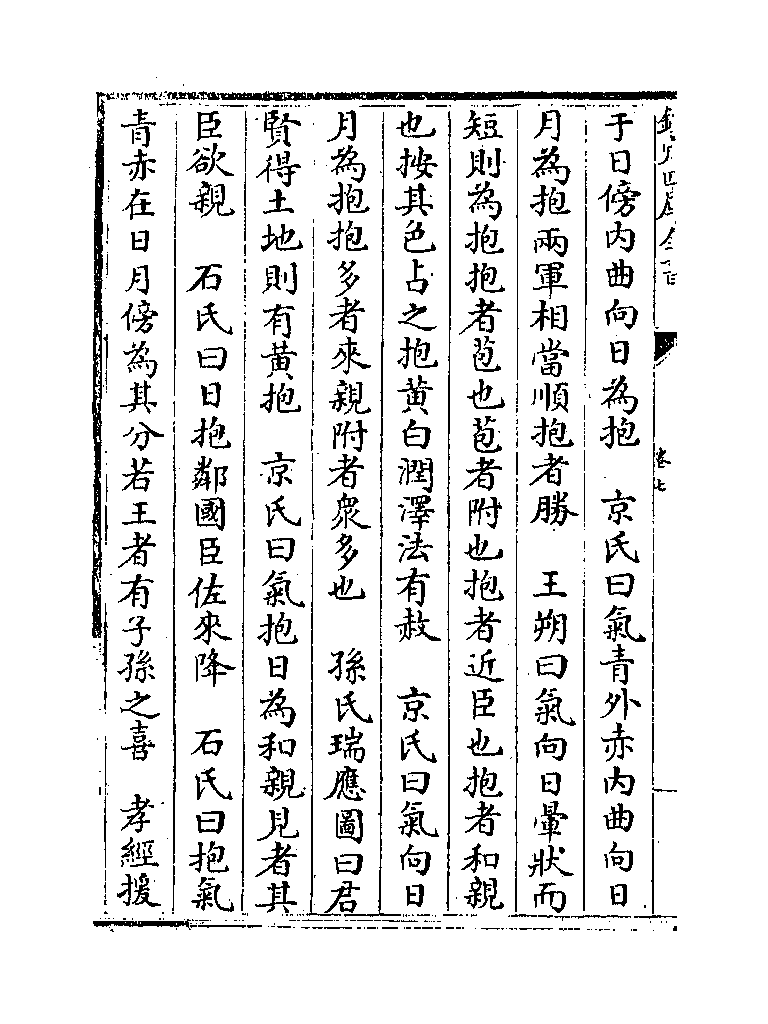 卷七
于日傍内曲向日為抱　京氏曰氣青外赤内曲向日
月為抱兩軍相當順抱者勝　王朔曰氣向日暈狀而
短則為抱抱者苞也苞者附也抱者近臣也抱者和親
也按其色占之抱黄白潤澤法有赦　京氏曰氣向日
月為抱抱多者來親附者衆多也　孫氏瑞應圖曰君
賢得土地則有黄抱　京氏曰氣抱日為和親見者其
臣欲親　石氏曰日抱鄰國臣佐來降　石氏曰抱氣
青赤在日月傍為其分若王者有子孫之喜　孝經援